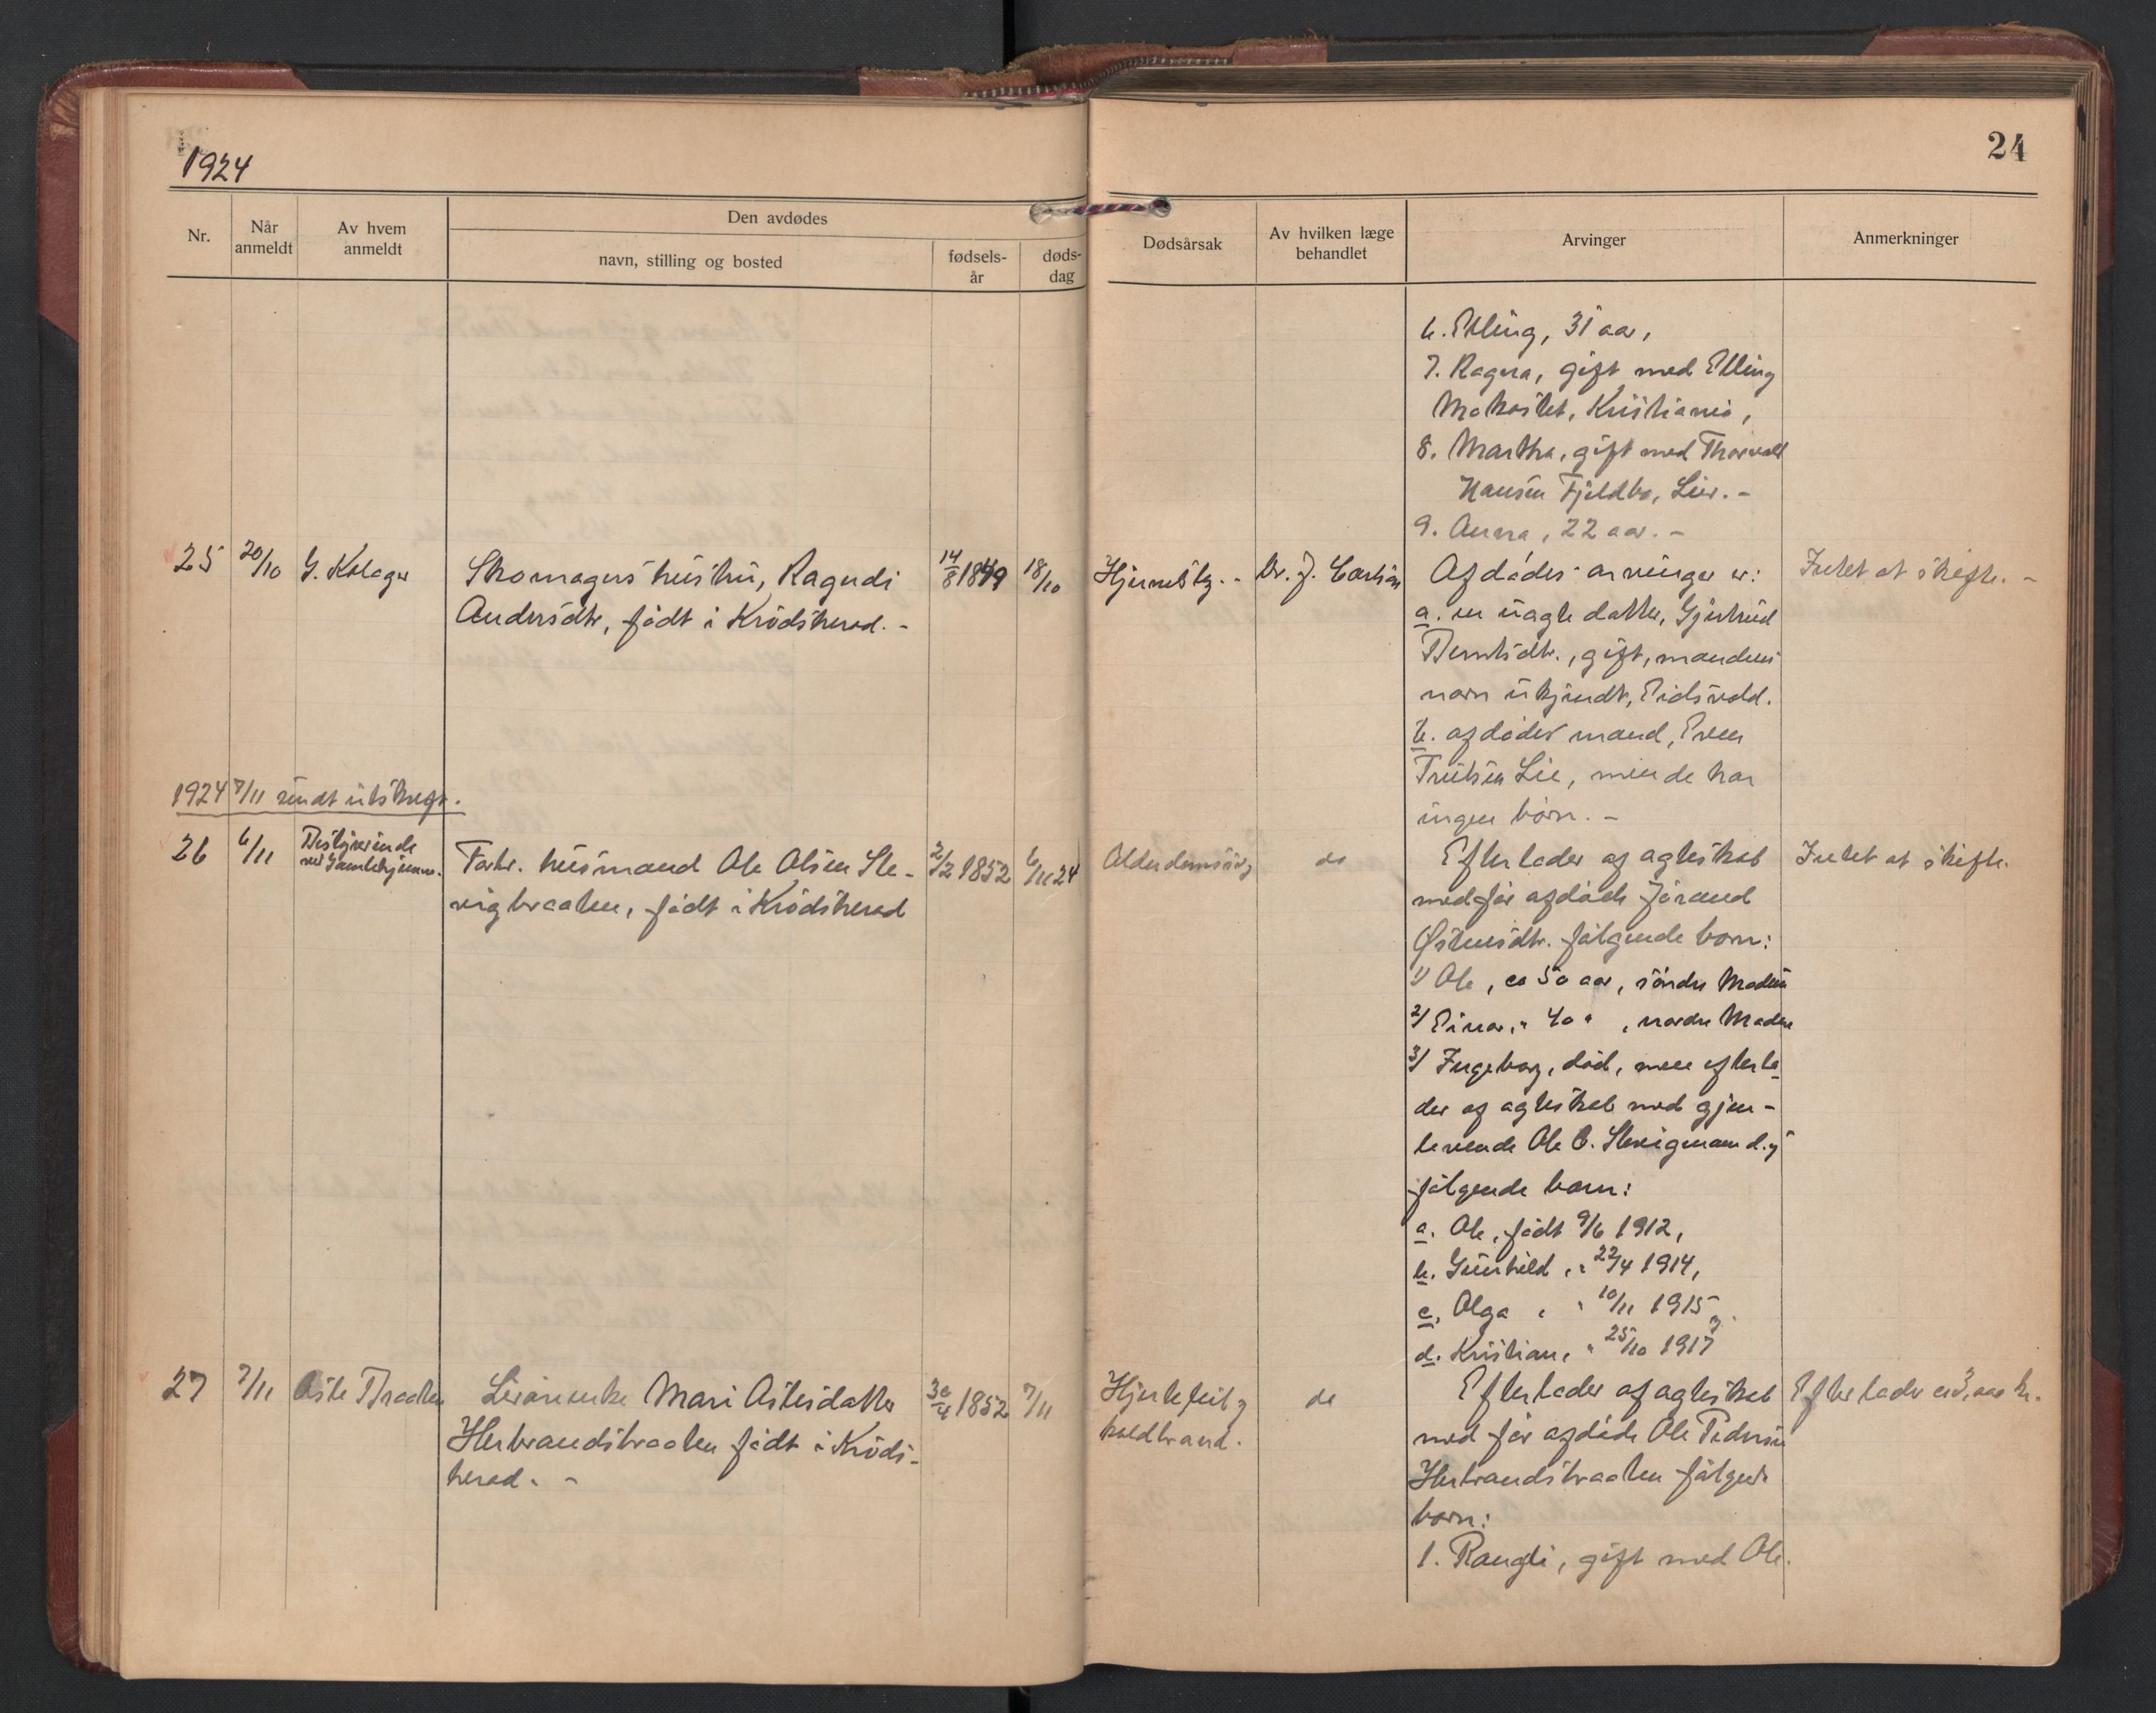 1924
24
Nr.
Når anmeldt
Av hvem anmeldt
Den avdødes
navn, stilling og bosted
fødsels-år
døds-dag
Dødsårsak
Av hvilken læge behandlet
Arvinger
Anmerkninger
6. Elling, 31 aar,
7. Ragna, gift med Elling
Kristiania,
8. Martha, gift med Thorvald
Hansen Fjeldbo, Lier. -
9. Anna, 22 aar. -
25 20/10 G. Kolager Skomagers hustru, Ragndi 14/8 1849 18/10 Hjerneslag. - Dr. J. Afdødes arvinger er: Intet at skifte. -
Andersdtr, født i Krødsherad. -
a. en uægte datter, Gjertrud
Berntsdtr., gift, mandens
navn ukjendt, Eidsvold.
b. afdødes mand, Even
Trulsen Lie, men de har
ingen børn. -
1924 7/11 sendt utskrift.
26 6/11 Bestyrerinde ved Gamlehjemmet. Forhv. husmand Ole Olsen Sle- 2/2 1852 6/11 24 Alderdomssvag do Efterlader af ægteskab Intet at skifte.
vigbraaten, født i Krødsherad
med før afdøde Jørand
Østensdtr. følgende børn:
1) Ole, ca 50 aar, søndre Modum
2) Einar, " 40 " , nordre Modum
3) Ingeborg, død, men efterla-
der af ægteskab med gjen-
levende Ole O. Slevigmoen d.y.
følgende børn:
a. Ole, født 9/6 1912,
b. Gunhild, " 22/4 1914,
c. Olga, " 10/11 1915,
d. Kristian, " 25/10 1917
27 7/11 Aste Braaten Mari Astesdatter 30/4 1852 7/11 Hjertefeil og Efterlader af ægteskab Efterlader ca 3,000 kr.
Herbrandsbraaten født i Krøds- koldbrand. do med før afdøde Ole Pedersen
herad. -
Herbrandsbraaten følgende
børn:
1. Rangdi, gift med Ole